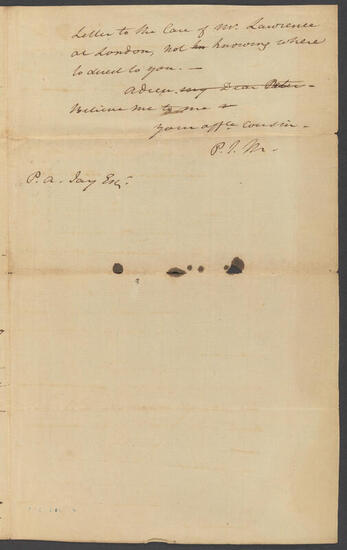 Letter to the Care of Mr. Lawrence
at London, not in knowing where
to direct to you. —
adieu my Dear Peter -
Believe me to me &
Your affte. Cousin -
P. J. M.
P. A. Jay Esqr.